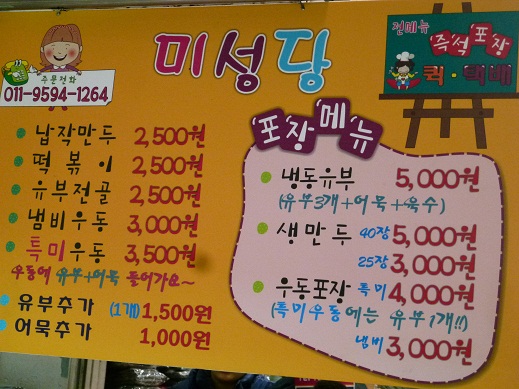 미성당
주문전화
011-9594-1264
전메뉴
즉석포장
퀵·택배
납작만두 2,500원
떡볶이 2,500원
유부전골 2,500원
냄비우동 3,000원
특미우동 3,500원
우동에 유부+어묵 들어가요~
유부추가 (1개) 1,500원
어묵추가 1,000원
포장메뉴
냉동유부 5,000원
(유부3개+어묵+육수)
생만두 40장 5,000원
25장 3,000원
우동포장 특미 4,000원
(특미우동에는 유부1개!!)
냄비 3,000원